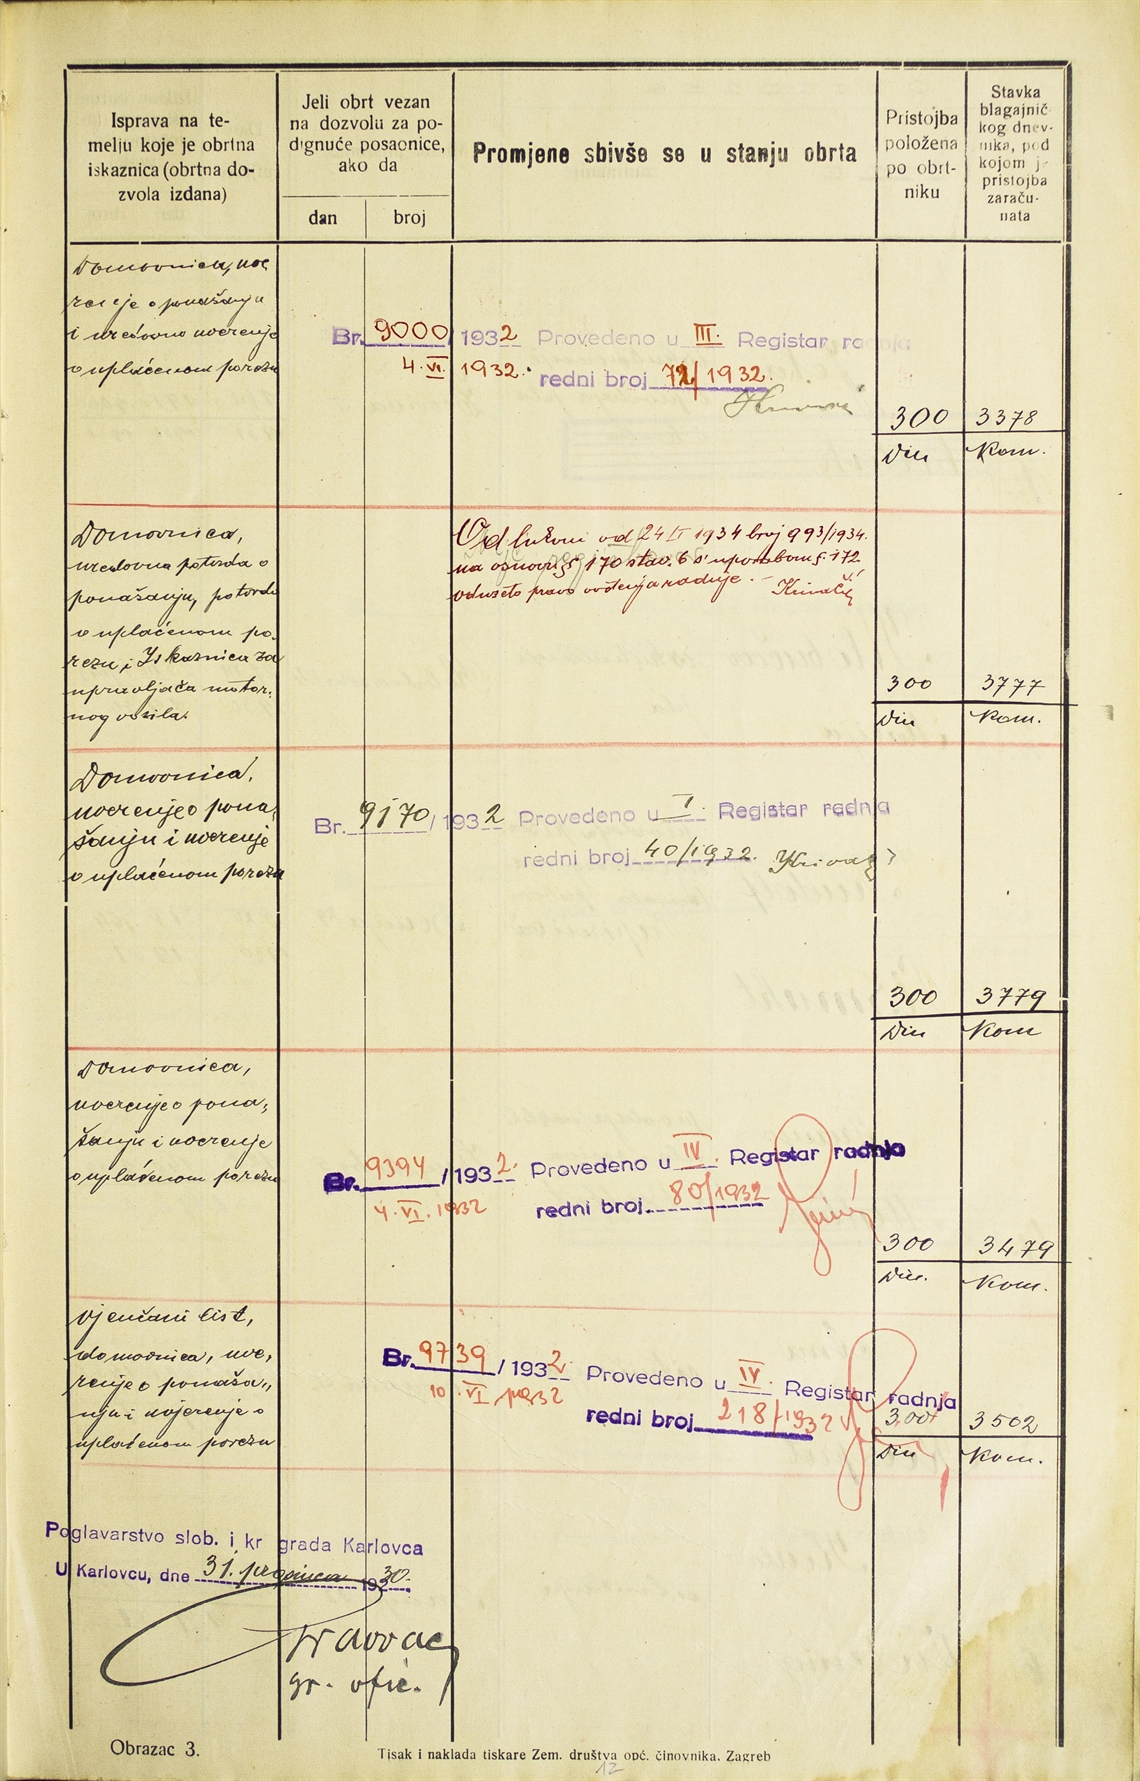 Isprava na te-
melju koje je obrtna
iskaznica (obrtna do-
zvola izdana)
Jeli obrt vezan
na dozvolu za po-
dignuće posaonice,
ako da
dan
broj
Promjene sbivše se u stanju obrta
Pristojba
položena
po obrt-
niku
Stavka
blagajnič-
kog dnev-
nika, pod
kojom je
pristojba
zaraču-
nata
Domovnica, uve
renje o ponašanju
i uredovno uverenje
o uplaćenom porezu
Br. 9000/1932 Provedeno u III. Registar radnja
4. VI. 1932. redni broj 72/1932.
300 3378
Din Kom.
Domovnica,
uredovna potvrda o
ponašanju, potvrda
o uplaćenom po-
rezu i Iskaznica za
upravljača motor-
nog vozila.
Odlukom od 24 II 1934 broj 993/1934.
na osnovi § 170 stav. 6 s uporabom § 172
oduzeto pravo vođenja radnje. -
300 3777
Din Kom.
Domovnica,
uverenje o pona-
šanju i uverenje
o uplaćenom porezu
Br. 9170/1932 Provedeno u I. Registar radnja
redni broj 40/1932.
300 3779
Din Kom
Domovnica,
uverenje o pona-
šanju i uverenje
o uplaćenom porezu
Br. 9394/1932. Provedeno u IV. Registar radnja
4. VI. 1932 redni broj 80/1932
300 3479
Din. Kom.
Vjenčani list,
domovnica, uve-
renje o ponaša-
nju i uvjerenje o
uplaćenom porezu
Br. 9739/1932. Provedeno u IV. Registar radnja
10. VI 1932 redni broj 218/1932
300 3502
Din Kom.
Poglavarstvo slob. i kr grada Karlovca
U Karlovcu, dne 31. prosinca 1930.
gr. ofic.
Obrazac 3.
Tisak i naklada tiskare Zem. društva opć. činovnika. Zagreb
12